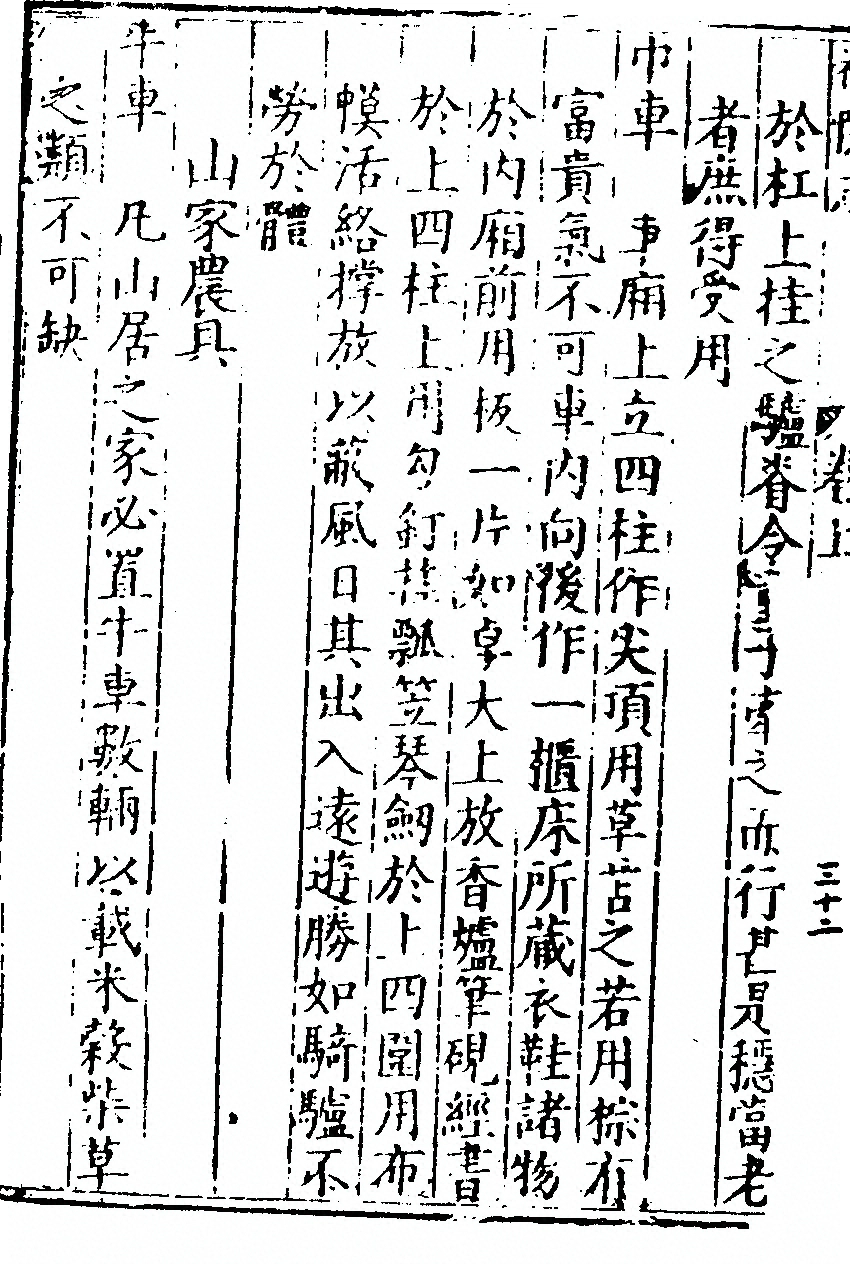 卷上
三十二
於杠上挂之驢脊令 行甚是穩當老
者庶得受用
巾車 車廂上立四柱作尖頂用草苫之若用棕有
富貴氣不可車內向後作一櫃床所藏衣鞋諸物
於內廂前用板一片如卓大上放香爐筆硯經書
於上四柱上用勾釘挂瓢笠琴劒於上四圍用布
幙活絡撑放以蔽風日其出入遠遊勝如騎驢不
勞於體
山家農具
牛車 凡山居之家必置牛車數輛以載米穀柴草
之類不可缺